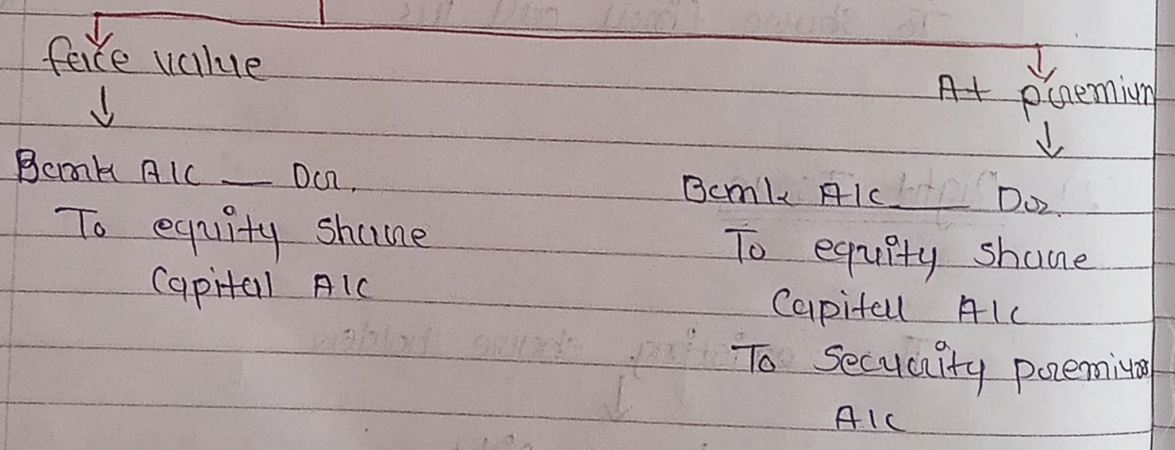 face value
At premium
Bank A/C — Dr.
To equity share
Capital A/C
Bank A/C — Dr.
To equity share
Capital A/C
To Security premium
A/C